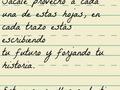 Sácale provecho a cada
una de estas hojas, en
cada trazo estás
escribiendo
tu futuro y forjando tu
historia.